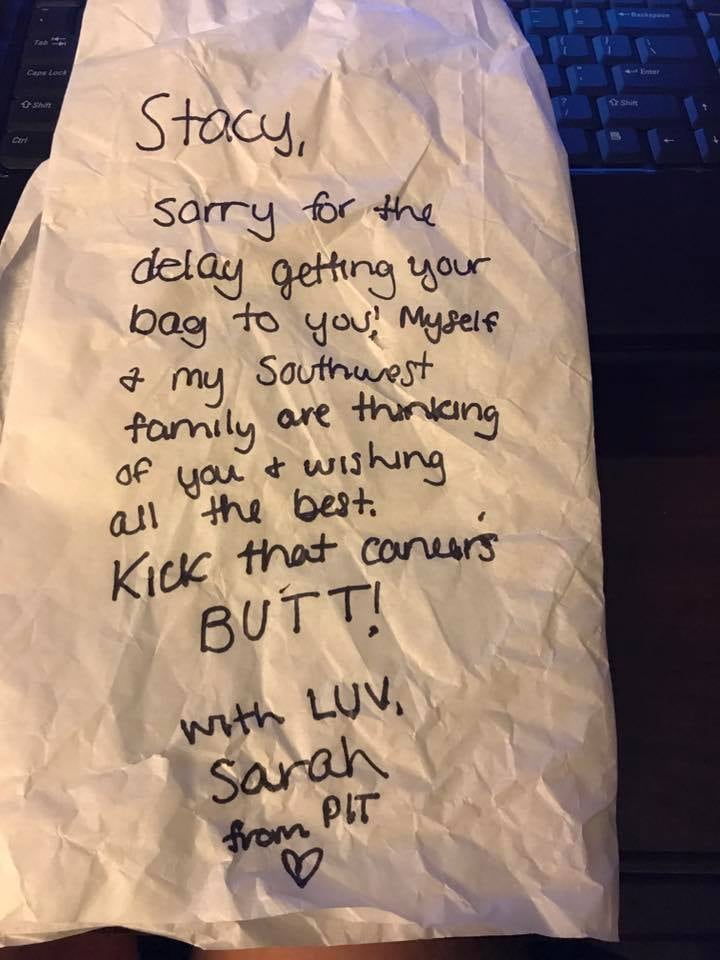 Backspace
Tab
Enter
Caps Lock
Shift
Shift
Ctrl
Stacy,
sorry for the
delay getting your
bag to you! Myself
& my Southwest
family are thinking
of you & wishing
all the best.
Kick that cancer's
BUTT!
with LUV,
Sarah
from PIT